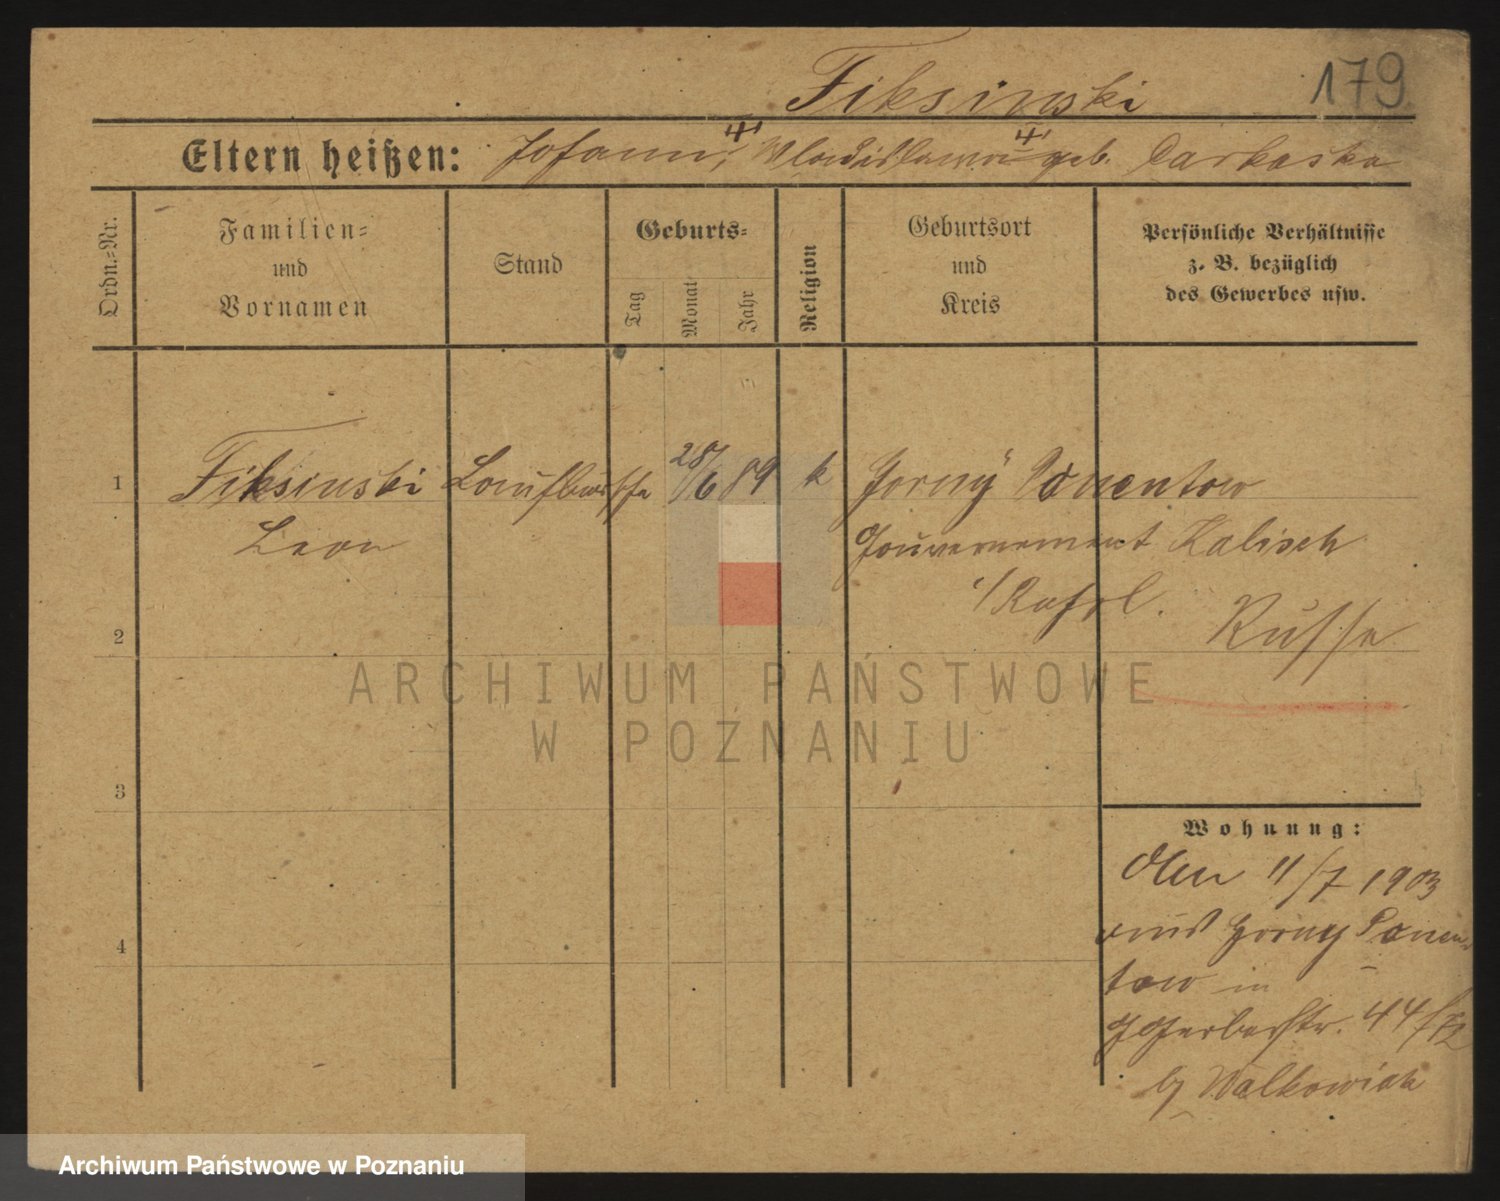 Fiksinski 179
Eltern heißen: Johann, Wladislawa geb. Carkaska
Ordn.-Nr.
Familien- und Vornamen
Stand
Geburts-
Tag Monat Jahr
Religion
Geburtsort und Kreis
Persönliche Verhältnisse
z. B. bezüglich
des Gewerbes usw.
1 Fiksinski Laufbursche 28/6 89 k Gorny Ponentow
Leon Gouvernement Kalisch
Russe
2
ARCHIWUM PAŃSTWOWE
W POZNANIU
3
Wohnung:
Den 11/7 1903
aus Gorny Ponen-
4
tow in
Gerberstr. 44
by Walkowiak
Archiwum Państwowe w Poznaniu